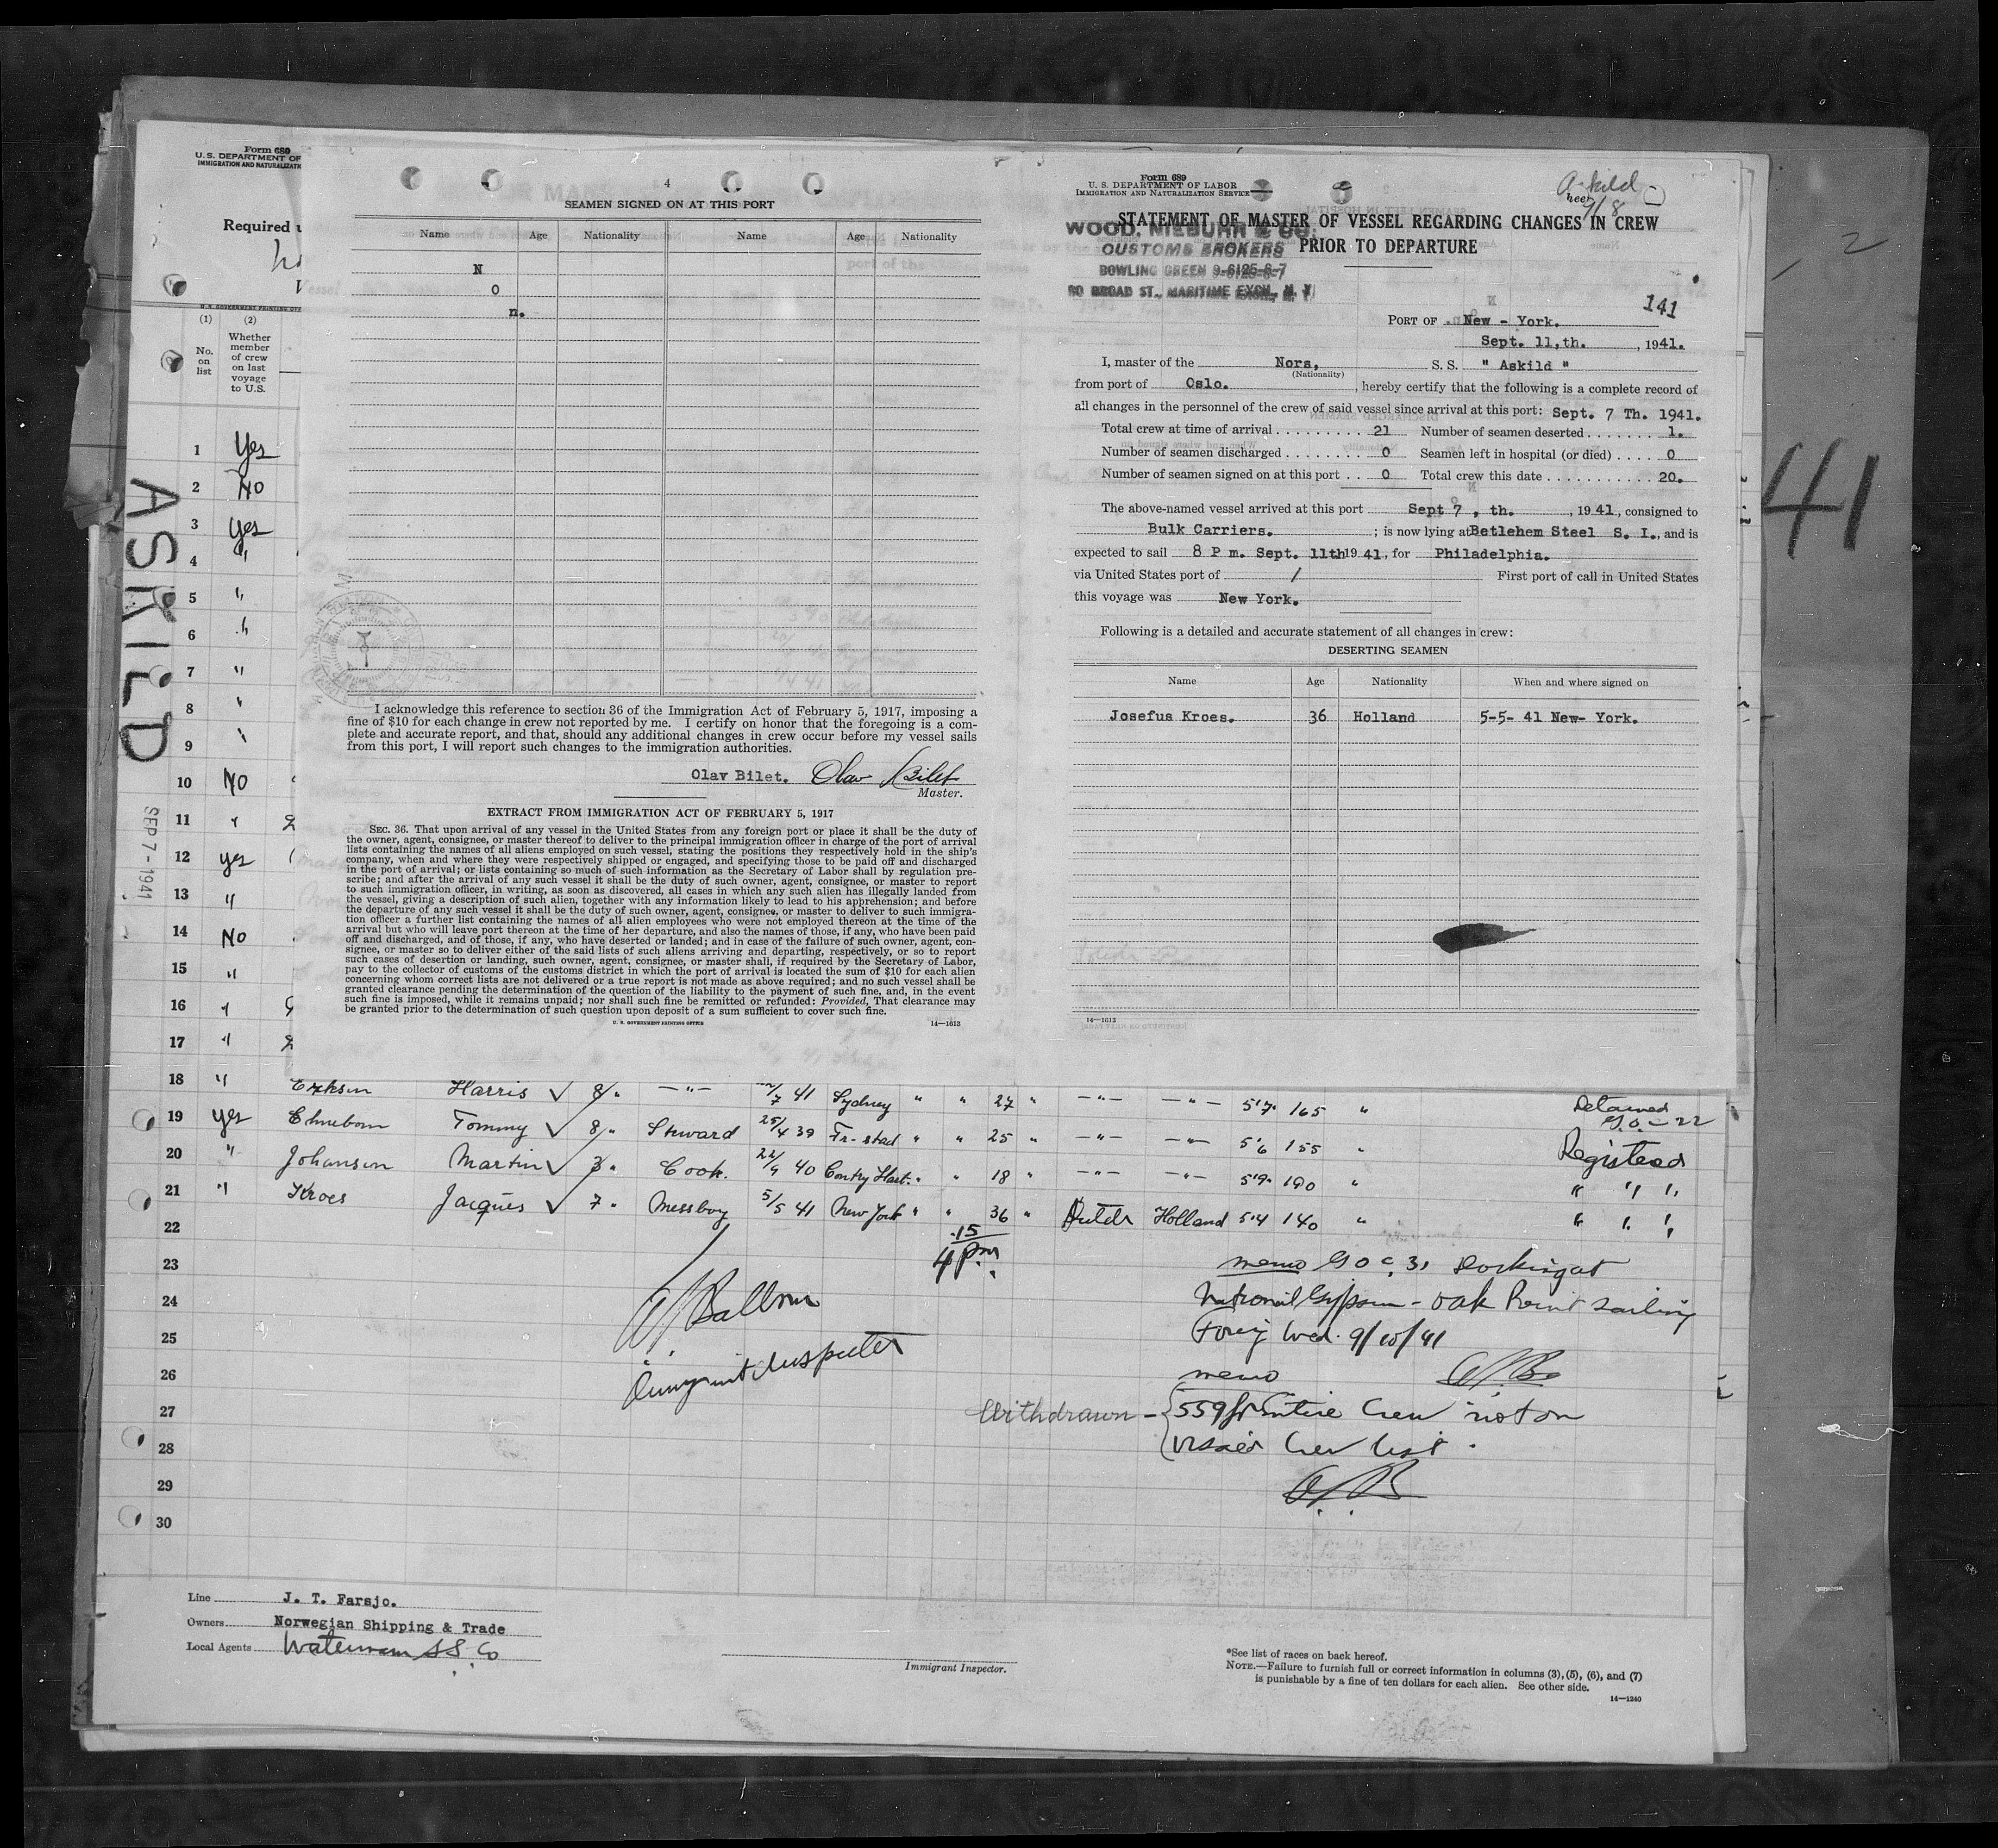 Form 689
U. S. DEPARTMENT OF
IMMIGRATION AND NATURALIZATI
Required u
U. S. GOVERNMENT PRINTING OFF
(1) (2)
No. on list
Whether member of crew on last voyage to U.S.
1 Yes
2 No
3 Yes
4 "
5 "
6 "
7 "
8 "
9 "
10 No
11 "
12 yes
13 "
14 No
15 "
16 "
17 "
ASKILD
SEP 7-1941
4
SEAMEN SIGNED ON AT THIS PORT
Name Age Nationality Name Age Nationality
N
o
n.
I acknowledge this reference to section 36 of the Immigration Act of February 5, 1917, imposing a
fine of $10 for each change in crew not reported by me. I certify on honor that the foregoing is a com-
plete and accurate report, and that, should any additional changes in crew occur before my vessel sails
from this port, I will report such changes to the immigration authorities.
Olav Bilet. Olav Bilet
Master.
EXTRACT FROM IMMIGRATION ACT OF FEBRUARY 5, 1917
SEC. 36. That upon arrival of any vessel in the United States from any foreign port or place it shall be the duty of
the owner, agent, consignee, or master thereof to deliver to the principal immigration officer in charge of the port of arrival
lists containing the names of all aliens employed on such vessel, stating the positions they respectively hold in the ship's
company, when and where they were respectively shipped or engaged, and specifying those to be paid off and discharged
in the port of arrival; or lists containing so much of such information as the Secretary of Labor shall by regulation pre-
scribe; and after the arrival of any such vessel it shall be the duty of such owner, agent, consignee, or master to report
to such immigration officer, in writing, as soon as discovered, all cases in which any such alien has illegally landed from
the vessel, giving a description of such alien, together with any information likely to lead to his apprehension; and before
the departure of any such vessel it shall be the duty of such owner, agent, consignee, or master to deliver to such immigra-
tion officer a further list containing the names of all alien employees who were not employed thereon at the time of the
arrival but who will leave port thereon at the time of her departure, and also the names of those, if any, who have been paid
off and discharged, and of those, if any, who have deserted or landed; and in case of the failure of such owner, agent, con-
signee, or master so to deliver either of the said lists of such aliens arriving and departing, respectively, or so to report
such cases of desertion or landing, such owner, agent, consignee, or master shall, if required by the Secretary of Labor,
pay to the collector of customs of the customs district in which the port of arrival is located the sum of $10 for each alien
concerning whom correct lists are not delivered or a true report is not made as above required; and no such vessel shall be
granted clearance pending the determination of the question of the liability to the payment of such fine, and, in the event
such fine is imposed, while it remains unpaid; nor shall such fine be remitted or refunded: Provided, That clearance may
be granted prior to the determination of such question upon deposit of a sum sufficient to cover such fine.
U. S. GOVERNMENT PRINTING OFFICE 14—1613
Form 689
U. S. DEPARTMENT OF LABOR
IMMIGRATION AND NATURALIZATION SERVICE
Askild
9/8
STATEMENT OF MASTER OF VESSEL REGARDING CHANGES IN CREW
PRIOR TO DEPARTURE
WOOD, NIEBUHR & CO.
CUSTOMS BROKERS
BOWLING GREEN 9-6125-6-7
80 BROAD ST., MARITIME EXCH., N. Y.
141
PORT OF New - York.
Sept. 11,th. , 1941.
I, master of the Nors, S. S. " Askild "
(Nationality)
from port of Oslo. , hereby certify that the following is a complete record of
all changes in the personnel of the crew of said vessel since arrival at this port: Sept. 7 Th. 1941.
Total crew at time of arrival 21 Number of seamen deserted 1.
Number of seamen discharged 0 Seamen left in hospital (or died) 0
Number of seamen signed on at this port 0 Total crew this date 20.
The above-named vessel arrived at this port Sept 7 , th. , 1941, consigned to
Bulk Carriers. ; is now lying at Betlehem Steel S. I., and is
expected to sail 8 P m. Sept. 11th 1941, for Philadelphia.
via United States port of / First port of call in United States
this voyage was New York.
Following is a detailed and accurate statement of all changes in crew:
DESERTING SEAMEN
Name Age Nationality When and where signed on
Josefus Kroes. 36 Holland 5-5- 41 New- York.
14—1613
41
2
18 " Eriksen Harris 8 " —"— 7 41 Sydney " " 27 " —"— —"— 5'7" 165 " Detained
19 yes Ehnebom Tommy 8 " Steward 25/4 39 Fr-stad " " 25 " —"— —"— 5'6 155 " Registered
20 " Johansen Martin 3 " Cook. 22/9 40 " " 18 " —"— —"— 5'9" 190 " " " "
21 " Kroes Jacques 7 " Messboy 5/5 41 New York " " 36 " Dutch Holland 5'4 140 " " " "
22
23
24
25
26
27
28
29
30
15
4 pm
Immigrant Inspector
memo Docking at
National Gypsum - Oak Point sailing
Wed. 9/10/41
memo
Withdrawn - 559 for Entire Crew not on
visaed Crew list.
Line J. T. Farsjo.
Owners Norwegian Shipping & Trade
Local Agents Waterman SS. Co
Immigrant Inspector.
*See list of races on back hereof.
NOTE.—Failure to furnish full or correct information in columns (3), (5), (6), and (7)
is punishable by a fine of ten dollars for each alien. See other side.
14—1240